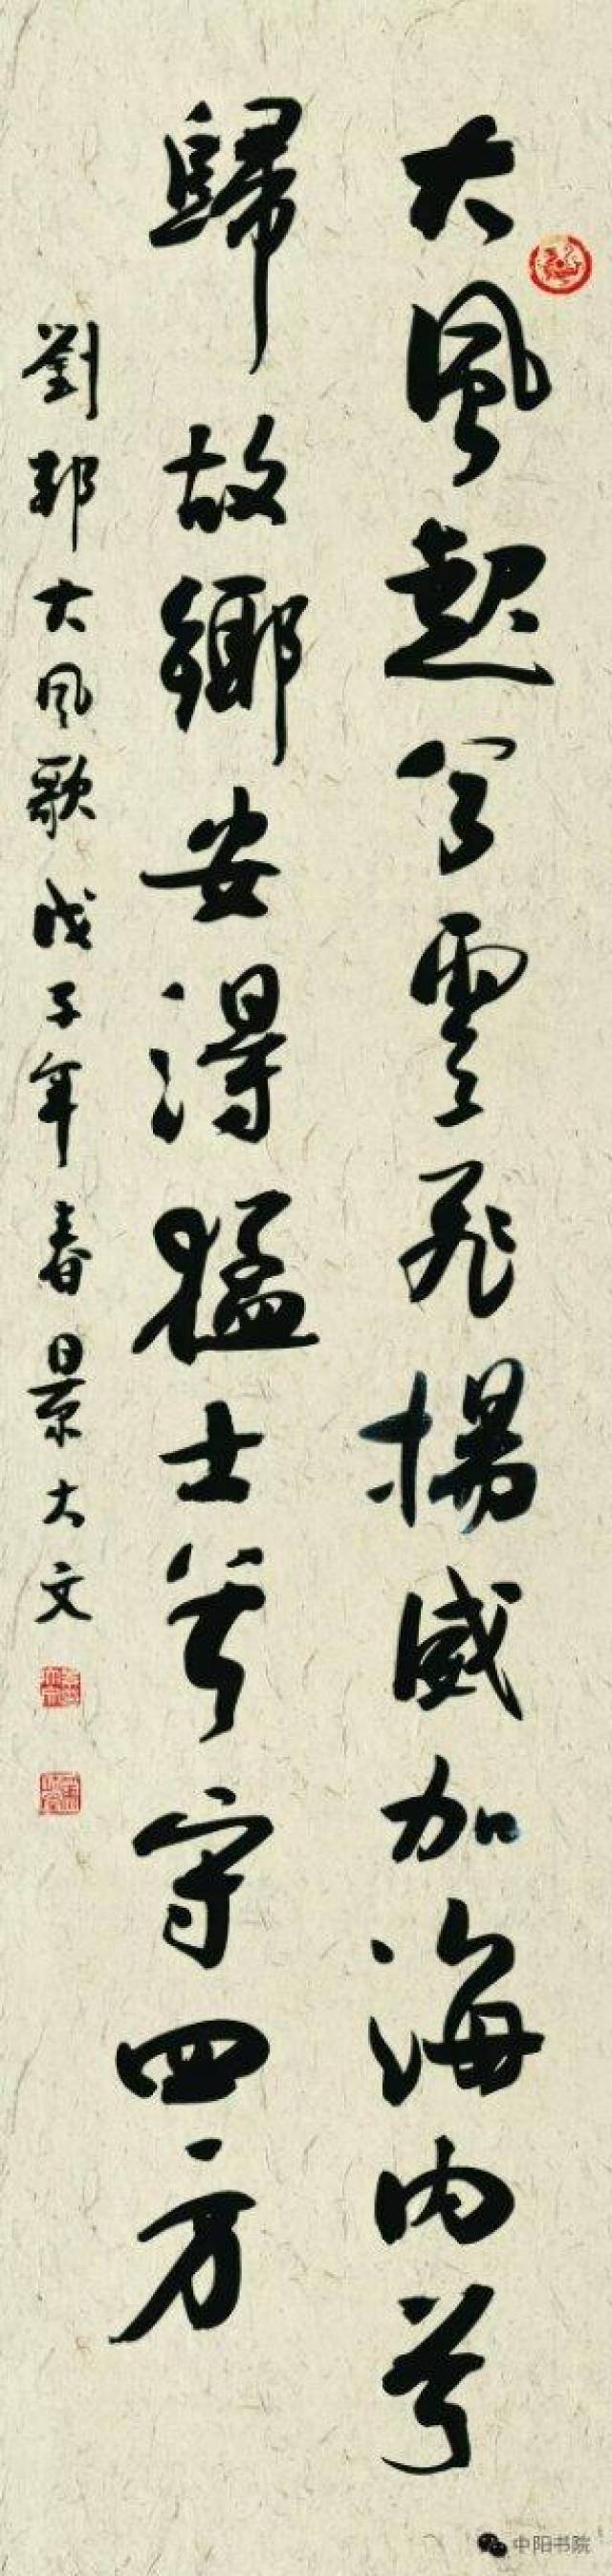 大風起兮雲飛揚威加海内兮
歸故鄉安得猛士兮守四方
劉邦大风歌戊子年春景大文
中阳书院